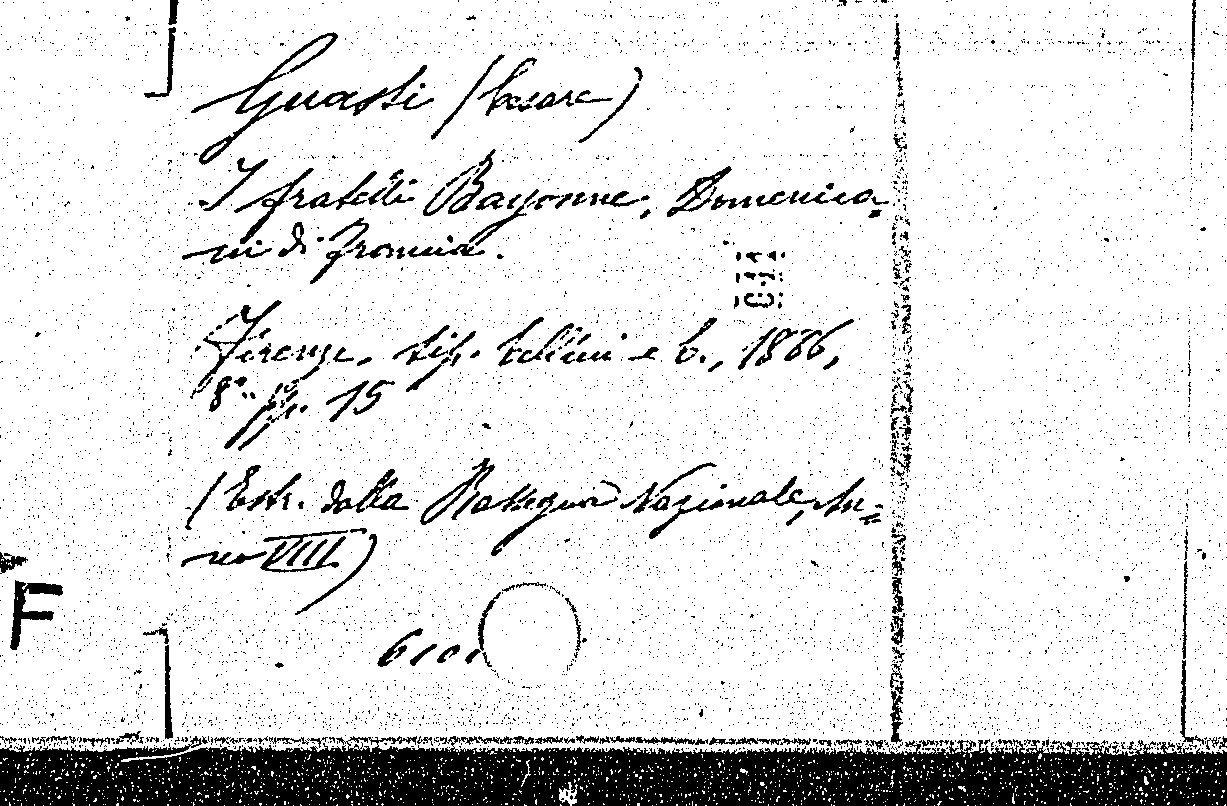 Guasti (Cesare)
I fratelli Bayonne, Domenica-
ni di Francia.
Firenze, tip. Cellini e C., 1886,
8°. pp. 15
(Estr. dalla Rassegna Nazionale, An=
no VIII)
F